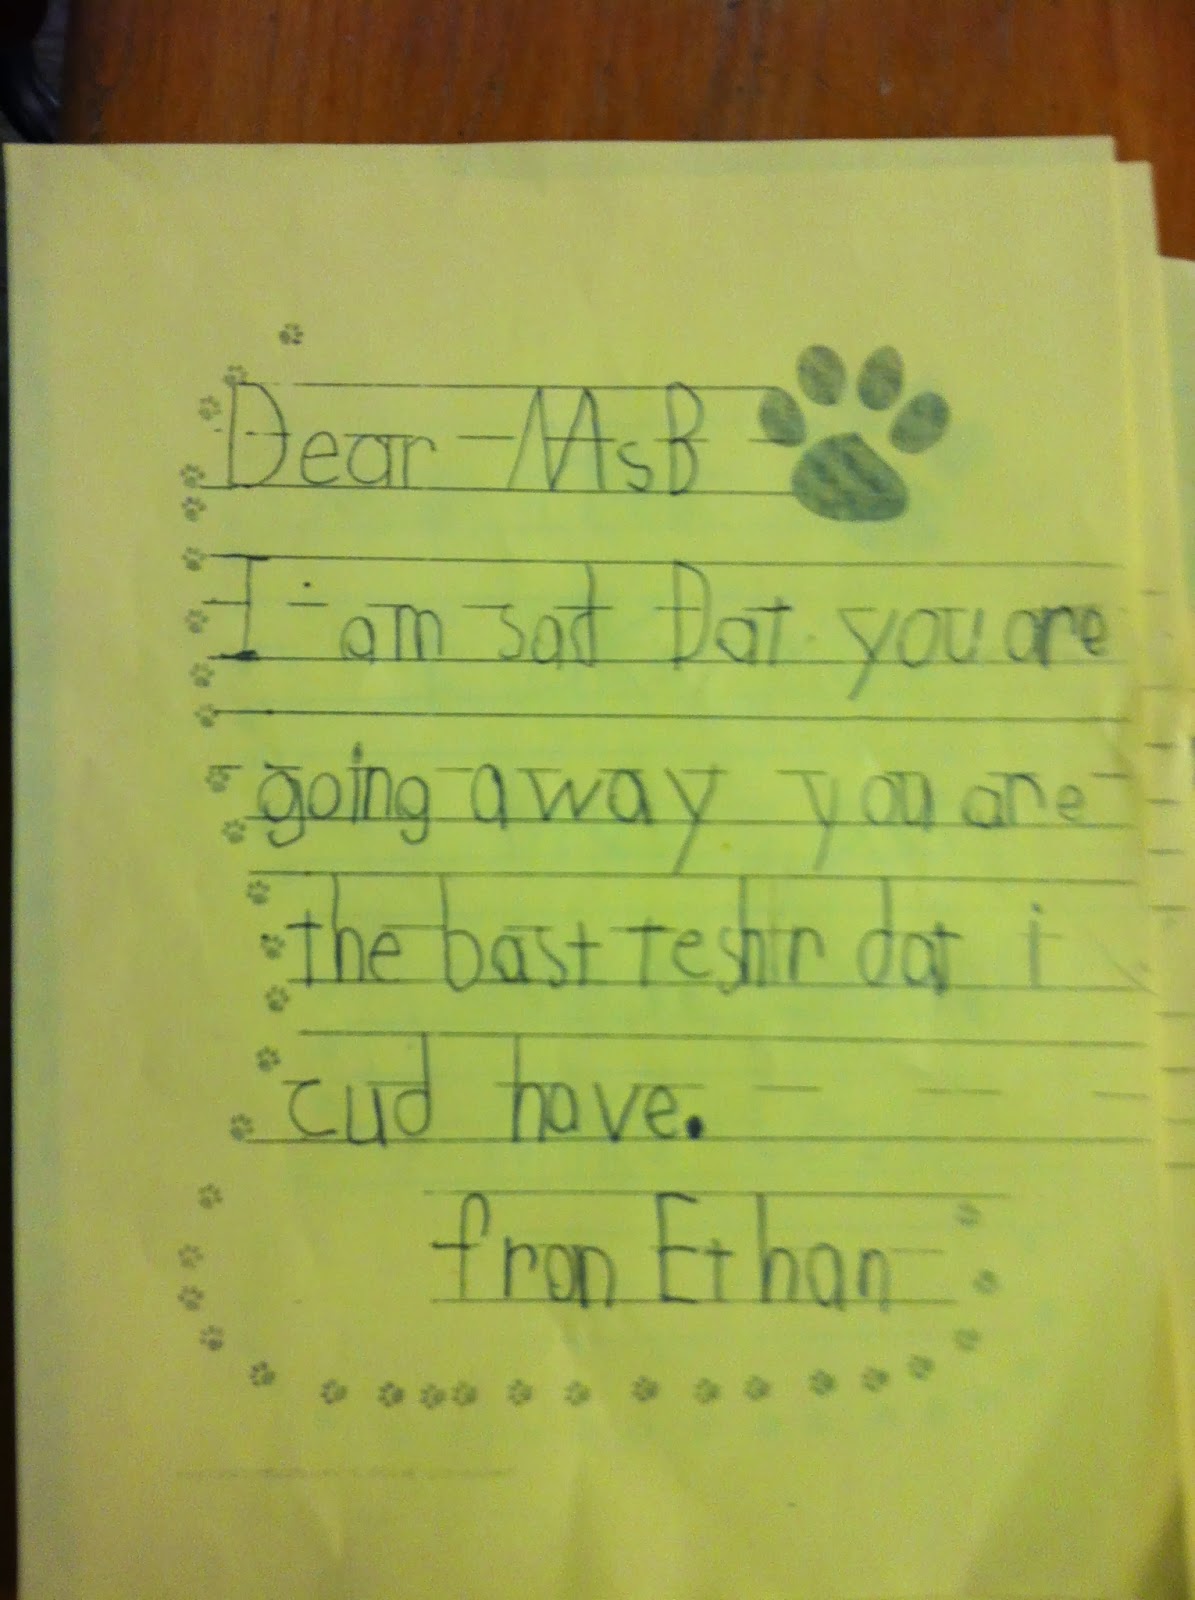 Dear MsB
I am sad Dat you are
going away you are
the bast teshin dat i
cud have.
fron Ethan